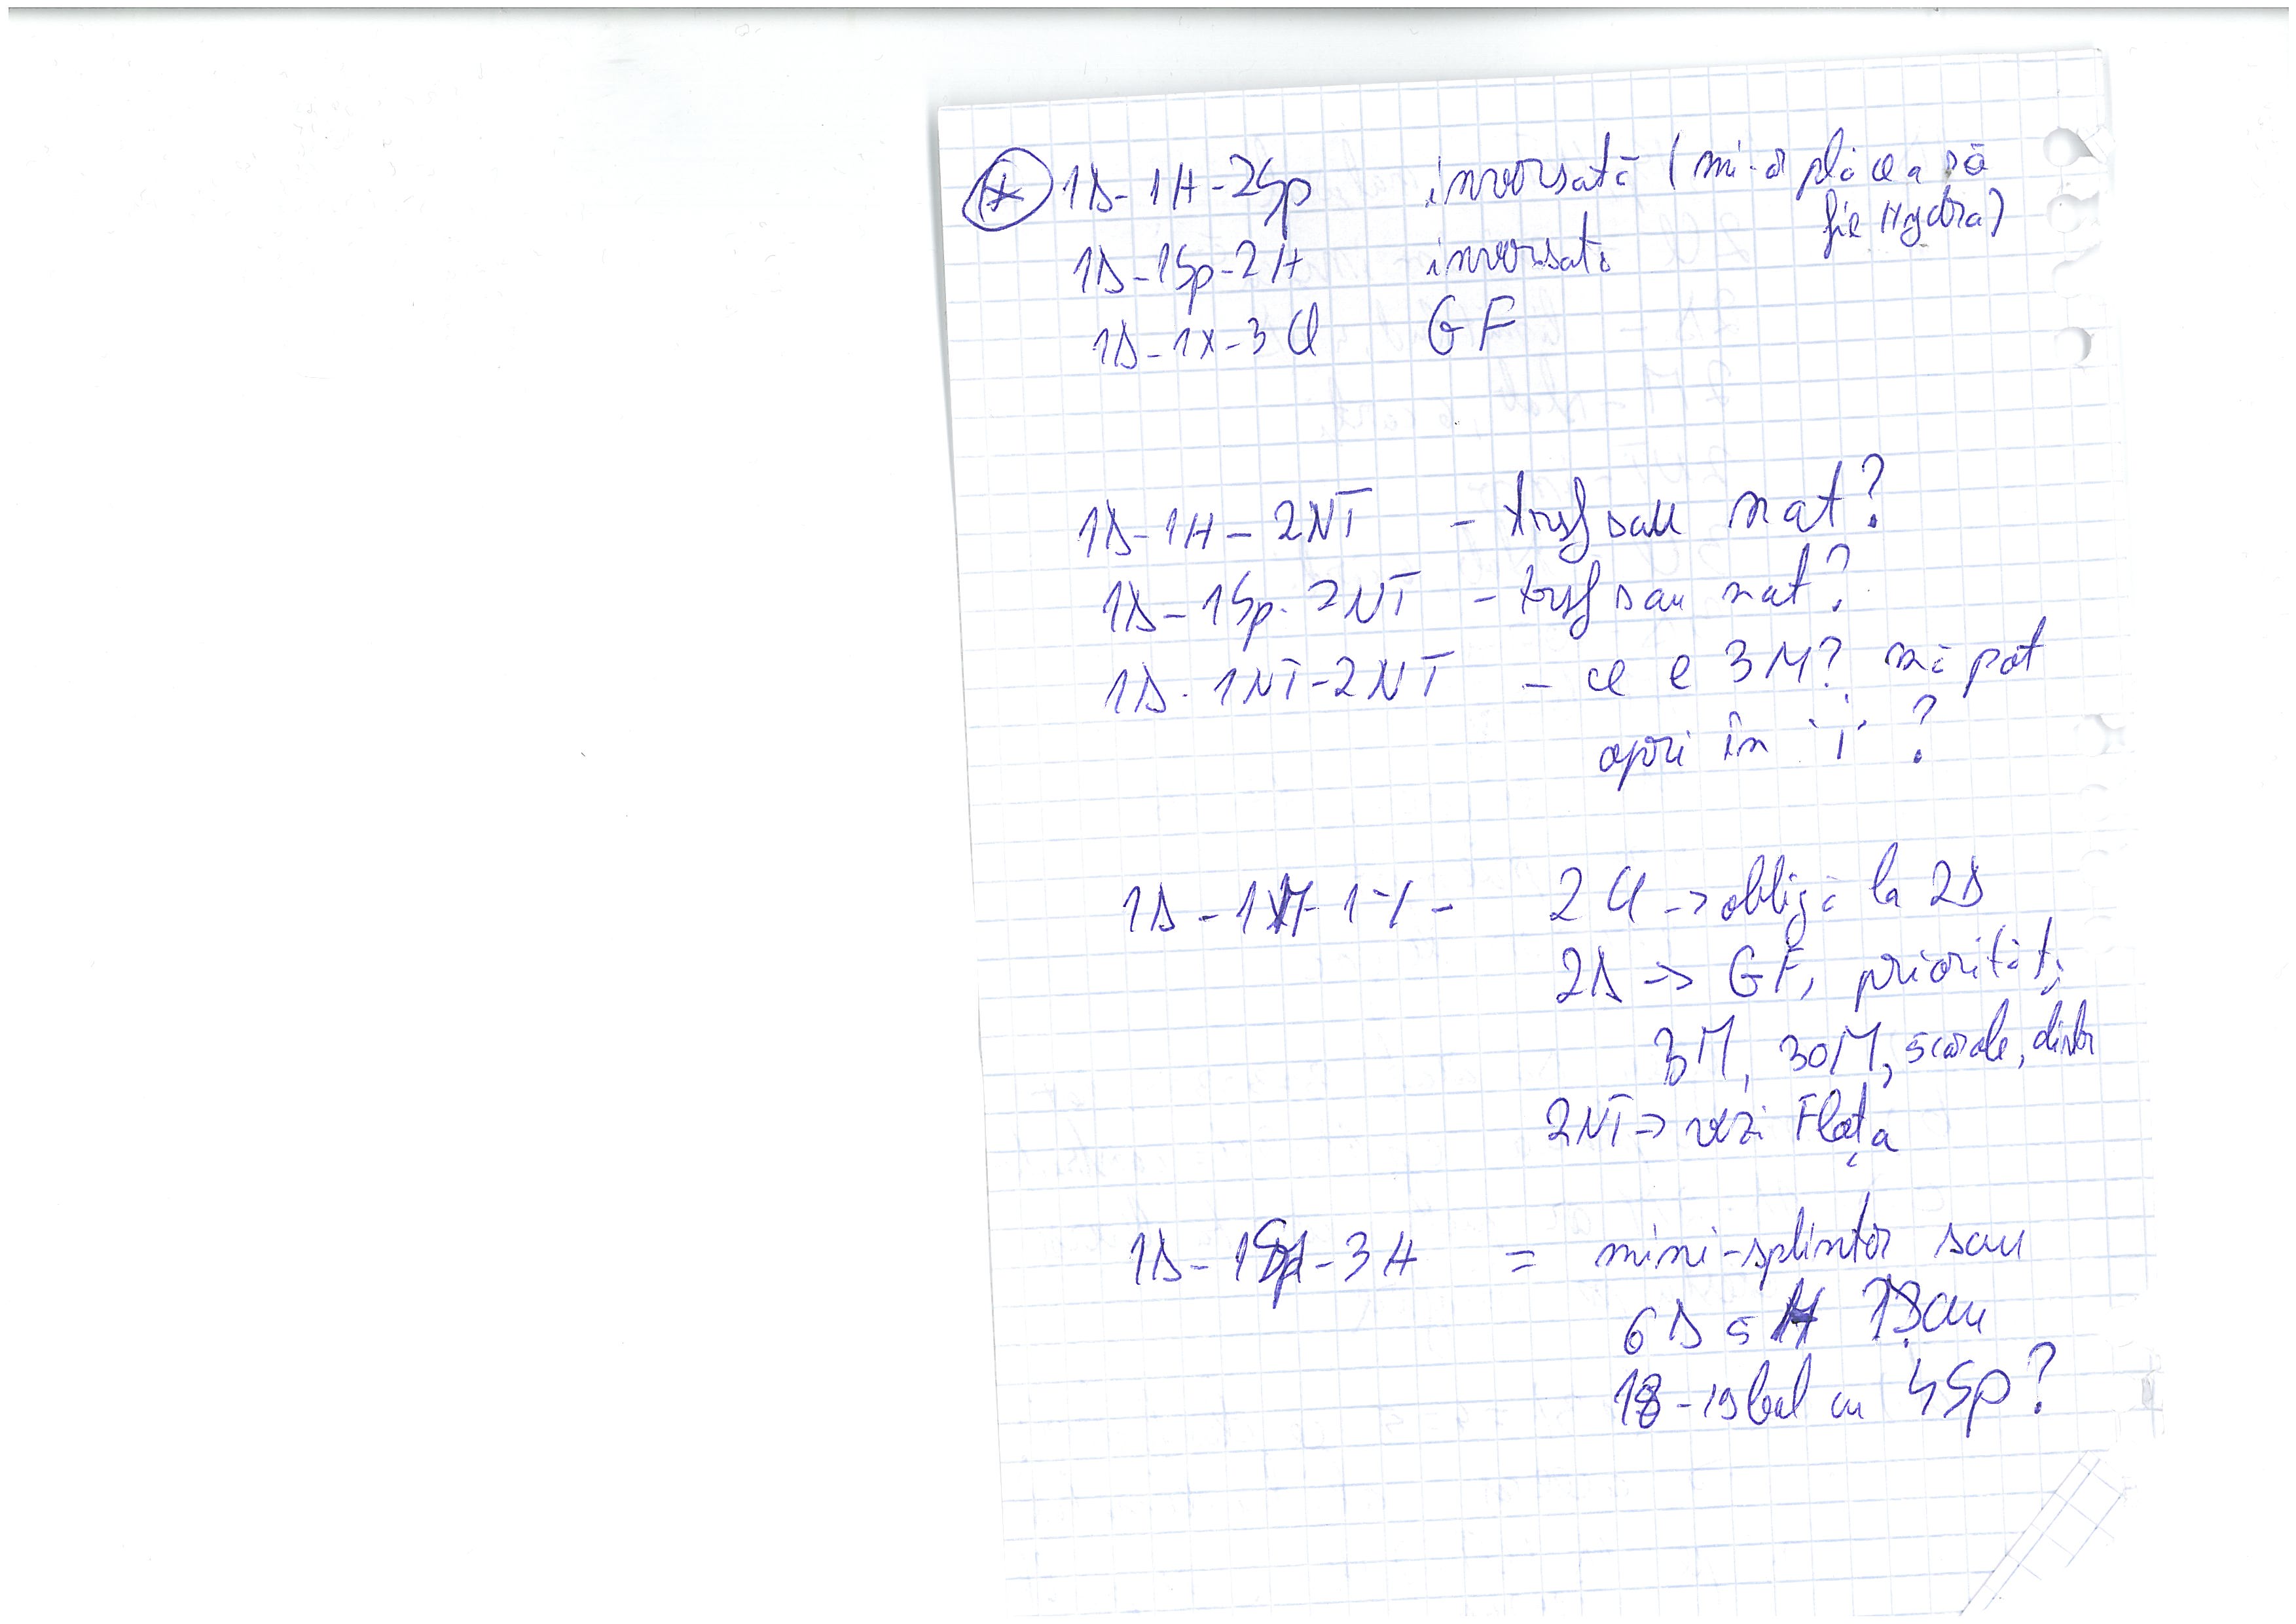 1D-1H-2Sp inversată (mi-ar plăcea să
fie Hydra)
1D-1Sp-2H inversată
1D-1X-3Cl GF
1D-1H-2NT - trsf sau nat?
1D-1Sp-2NT - trsf sau nat?
1D-1NT-2NT - ce e 3M? mă pot
opri în ?
1D-1M-1Y- 2Cl -> obligă la 2D
2D -> GF, priorități
3M, 3oM, 5 carole, distr
2NT -> vezi Flața
1D-1Sp-3H = mini-splinter sau
6D 5H sau
18-19 bal cu 4Sp?